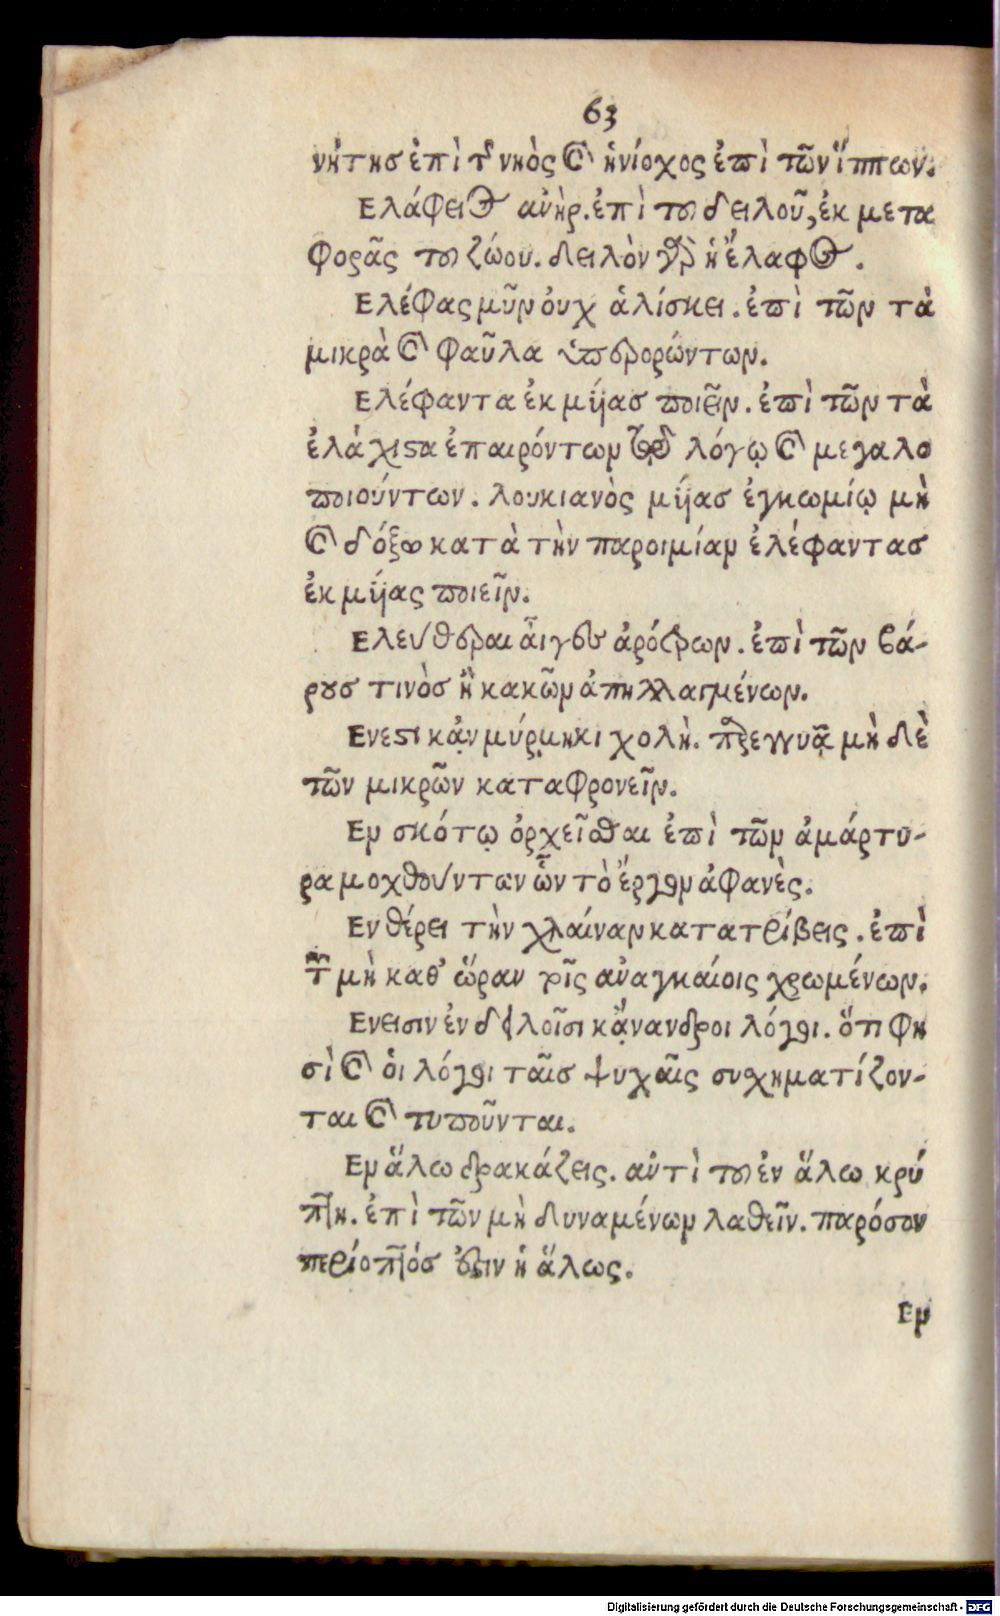 63
νήτης ἐπὶ τῆς νηὸς καὶ ἡνίοχος ἐπὶ τῶν ἵππων.
Ελάφειος ἀνὴρ. ἐπὶ τοῦ δειλοῦ, ἐκ μετα
φορᾶς τοῦ ζώου. δειλὸν γὰρ ἡ ἔλαφος.
Ελέφας μῦν ὀυχ ἁλίσκει. ἐπὶ τῶν τὰ
μικρὰ καὶ φαῦλα ὑπερορώντων.
Ελέφαντα ἐκ μυίας ποιεῖν. ἐπὶ τῶν τὰ
ἐλάχιστα ἐπαιρόντων τῷ λόγῳ καὶ μεγαλο
ποιούντων. λουκιανὸς μυίας ἐγκωμίῳ μὴ
καὶ δόξω κατὰ τὴν παροιμίαν ἐλέφαντας
ἐκ μυίας ποιεῖν.
Ελεύθεραι ἆιγες ἀρότρων. ἐπὶ τῶν βά-
ρους τινὸς ἢ κακῶν ἀπηλλαγμένων.
Ενεστι κᾂν μύρμηκι χολὴ. παρεγγυᾷ μὴ δὲ
τῶν μικρῶν καταφρονεῖν.
Εν σκότῳ ὀρχεῖσθαι ἐπὶ τῶν ἀμάρτυ-
ρα μοχθούντων ὧν τὸ ἔργον ἀφανὲς.
Εν θέρει τὴν χλαίναν κατατρίβεις. ἐπὶ
τῶν μὴ καθ' ὥραν τοῖς ἀναγκαίοις χρωμένων.
Ενεισιν ἐν δειλοῖσι κᾂν ἀνδροι λόγοι. ὅτι φη
σὶ καὶ ὁι λόγοι ταῖς ψυχαῖς συσχηματίζον-
ται καὶ τυποῦνται.
Εν ἅλω δρακάζεις. ἀντὶ τοῦ ἐν ἅλω κρύ
πτῃ. ἐπὶ τῶν μὴ δυναμένων λαθεῖν. παρόσον
περίοπτός ἐστιν ἡ ἅλως.
Εν
Digitalisierung gefördert durch die Deutsche Forschungsgemeinschaft - DFG